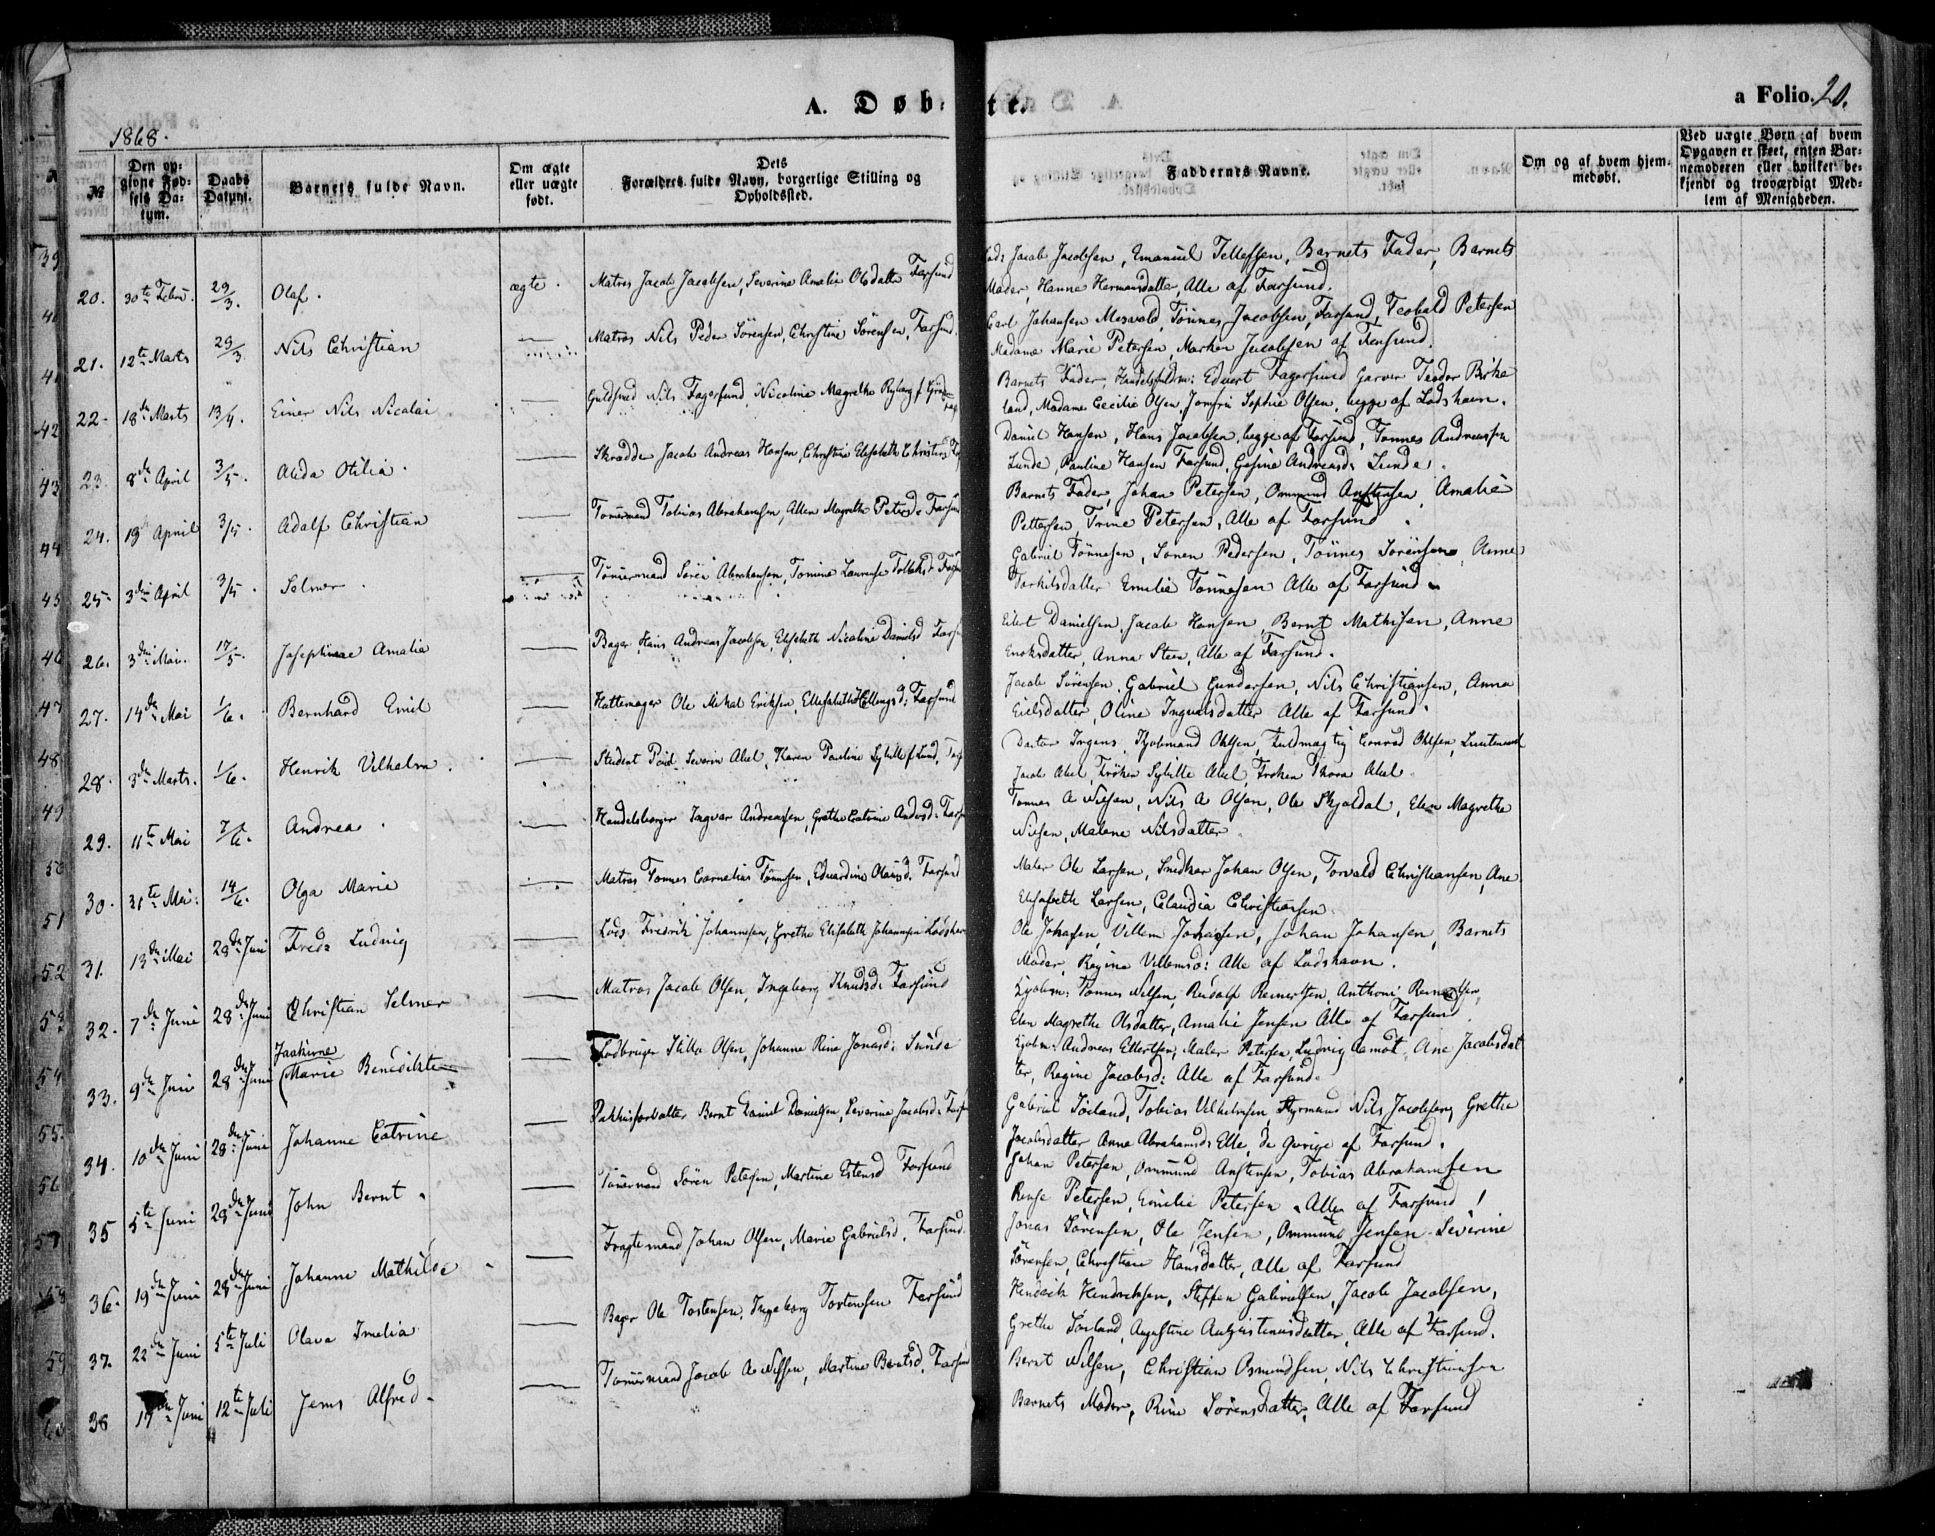 A. Døbte.
a Folio 20.
1868.
№
Den opgivne Fødsels Datum.
Daabs Datum.
Barnets fulde Navn.
Om ægte eller uægte født.
Dets Forældres fulde Navn, borgerlige Stilling og Opholdssted.
Faddernes Navne.
Om og af hvem hjemmedøbt.
Ved uægte Børn af hvem Opgaven er skeet, enten Barnemoderen eller hvilket bekjendt og troværdigt Medlem af Menigheden.
20. 30te Febru. 29/3. Olaf. ægte. Matros Jacob Jacobsen, Severine Amalie Olsdatter Farsund
Jacob Jacobsen, Emanuel Tellefsen, Barnets Fader, Barnets
Moder, Hanne Hermansdatter, Alle af Farsund.
21. 12te Marts 29/3. Nils Christian — Matros Nils Peder Sörensen, Christine Sörensen, Farsund.
Carl Johansen Meswald, Tönnes Jacobsen, Farsund, Teobald Petersen
Madame Marie Petersen, Marken Jacobsen af Farsund.
22. 18de Marts 13/4. Einer Nils Nicolai — Guldsmed Nils Fagersund, Nicoline Magrethe
Barnets Fader, Edvert Fagersund Garver Teodor Birke
land, Madame Cecilie Olsen, Jomfru Sophie Olsen, begge af Lodshavn.
23. 8de April 3/5. Alida Otilia. — Skrædder Jacob Andreas Hansen, Christine Elisabeth
Daniel Hansen, Hans Jacobsen, begge af Farsund, Tonnes Andreassen
Lunde Pauline Hansen Farsund, Gesine Andreasd: Lunde.
24. 19de April 3/5. Adolf Christian — Tömmermand Tobias Abrahamsen, Allen Magrethe Petersd: Farsund
Barnets Fader, Johan Petersen, Ommund Anstensen, Amalie
Pettersen Trine Petersen, Alle af Farsund.
25. 3die April 3/5. Selmer. — Tömmermand Sören Abrahamsen, Tomine Laurense Tollaksd: Farsund
Gabriel Tönnesen, Soren Pedersen, Tönnes Sörensen, Anne
Torkilsdatter Emilie Tönnesen Alle af Farsund.
26. 3die Mai. 17/5. Josephinae Amalia — Bager Hans Andreas Jacobsen, Elisabeth Nicoline Danielsd Farsund
Eilert Danielsen, Jacob Hansen, Bernt Mathisen, Anne
Enoksdatter, Anna Steen, Alle af Farsund.
27. 14de Mai 1/6. Bernhard Emil — Hattemager Ole Mikal Eriksen, Farsund
Jacob Sörensen, Gabriel Gundersen, Nils Christiansen, Anna
Eielsdatter, Oline Ingvalsdatter Alle af Farsund.
28. 3de Marts. 1/6. Henrik Vilhelm. — Student Povel Severin Abel, Karen Pauline Sybille f Lund,
Doctor Irgens, Kjobmand Ohlsen, Fuldmægtig Conrad Ohlsen, Lieutenant
Jacob Abel, Fröken Sybille Abel Fröken Thora Abel.
29. 11te Mai 7/6. Andrea. — Handelsborger Ingvar Andreassen, Grethe Catrine Andersd: Farsund
Tonnes A Nilsen, Nils A Olsen, Ole Skjoldal, Elen Magrethe
Nilsen, Malene Nilsdatter.
30. 31te Mai. 14/6. Olga Marie — Matros Tonnes Cornelius Tönnesen, Eduardine Olausd. Farsund
Maler Ole Larsen, Snedker Johan Olsen, Torvald Christiansen, Ane
Elisabeth Larsen, Claudia Christiansen.
31. 13de Mai 28de Juni Fredr Ludvig — Lods Fredrik Johannesen, Grethe Elisabeth Johannesen Lodshavn
Ole Johansen, Villem Johansen, Johan Johansen, Barnets
Moder, Regine Villemsd: Alle af Lodshavn.
32. 7de Juni 28de Juni Christian Selmer — Matros Jacob Olsen, Ingeborg Knudsd: Farsund
Kjøbm: Tönnes Nilsen, Rudolf Reinertsen, Anthoni Reinertsen,
Elen Magrethe Olsdatter, Amalie Jensen Alle af Farsund.
33. 9de Juni 28de Juni Joakime Marie Benedikte — Jordbruger Olsen, Johanne Rine Jonasd: Sunde
Kjobm: Andreas Ellertsen, Maler Petersen, Ludvig Aamöt, Ane Jacobsdat
ter, Regine Jacobsd: Alle af Farsund.
34. 10de Juni 28de Juni Johanne Catrine — Pakhusforvalter Bernt Daniel Danielsen, Severine Jacobsd: Farsund
Gabriel Söiland, Tobias Vilhelmsen, Styrmand Nils Jacobsen, Grethe
Jacobsdatter Anna Abrahamsd: Elle, de övrige af Farsund.
35 5te Juni 28de Juni John Bernt. — Tömmermand Sören Petersen, Martine Estensd Farsund
Johan Petersen, Ommund Anstensen, Tobias Abrahamsen
Rense Petersen, Emilie Petersen, Alle af Farsund!
36. 19de Juni 28de Juni Johanne Mathilde — Fragtemand Johan Olsen, Marie Gabrielsd, Farsund
Jonas Sörensen, Ole Jensen, Ommund Jensen, Severine
Sörensen, Christine Hansdatter, Alle af Farsund
37. 22de Juni 5te Juli Olava Imelia — Bager Ole Tostensen, Ingeborg Tostensen Farsund
Hendrik Hendriksen, Steffen Gabrielsen, Jacob Jacobsen,
Grethe Soiland, Augustine Augustinusdatter, Alle af Farsund.
38 Juni 12te Juli Jens Alfred. — Tömmermand Jacob A Nilssen, Martine Berntsd, Farsund
Bernt Nilsen, Christian Osmundsen, Nils Christiansen
Barnets Moder, Rine Sörensdatter, Alle af Farsund